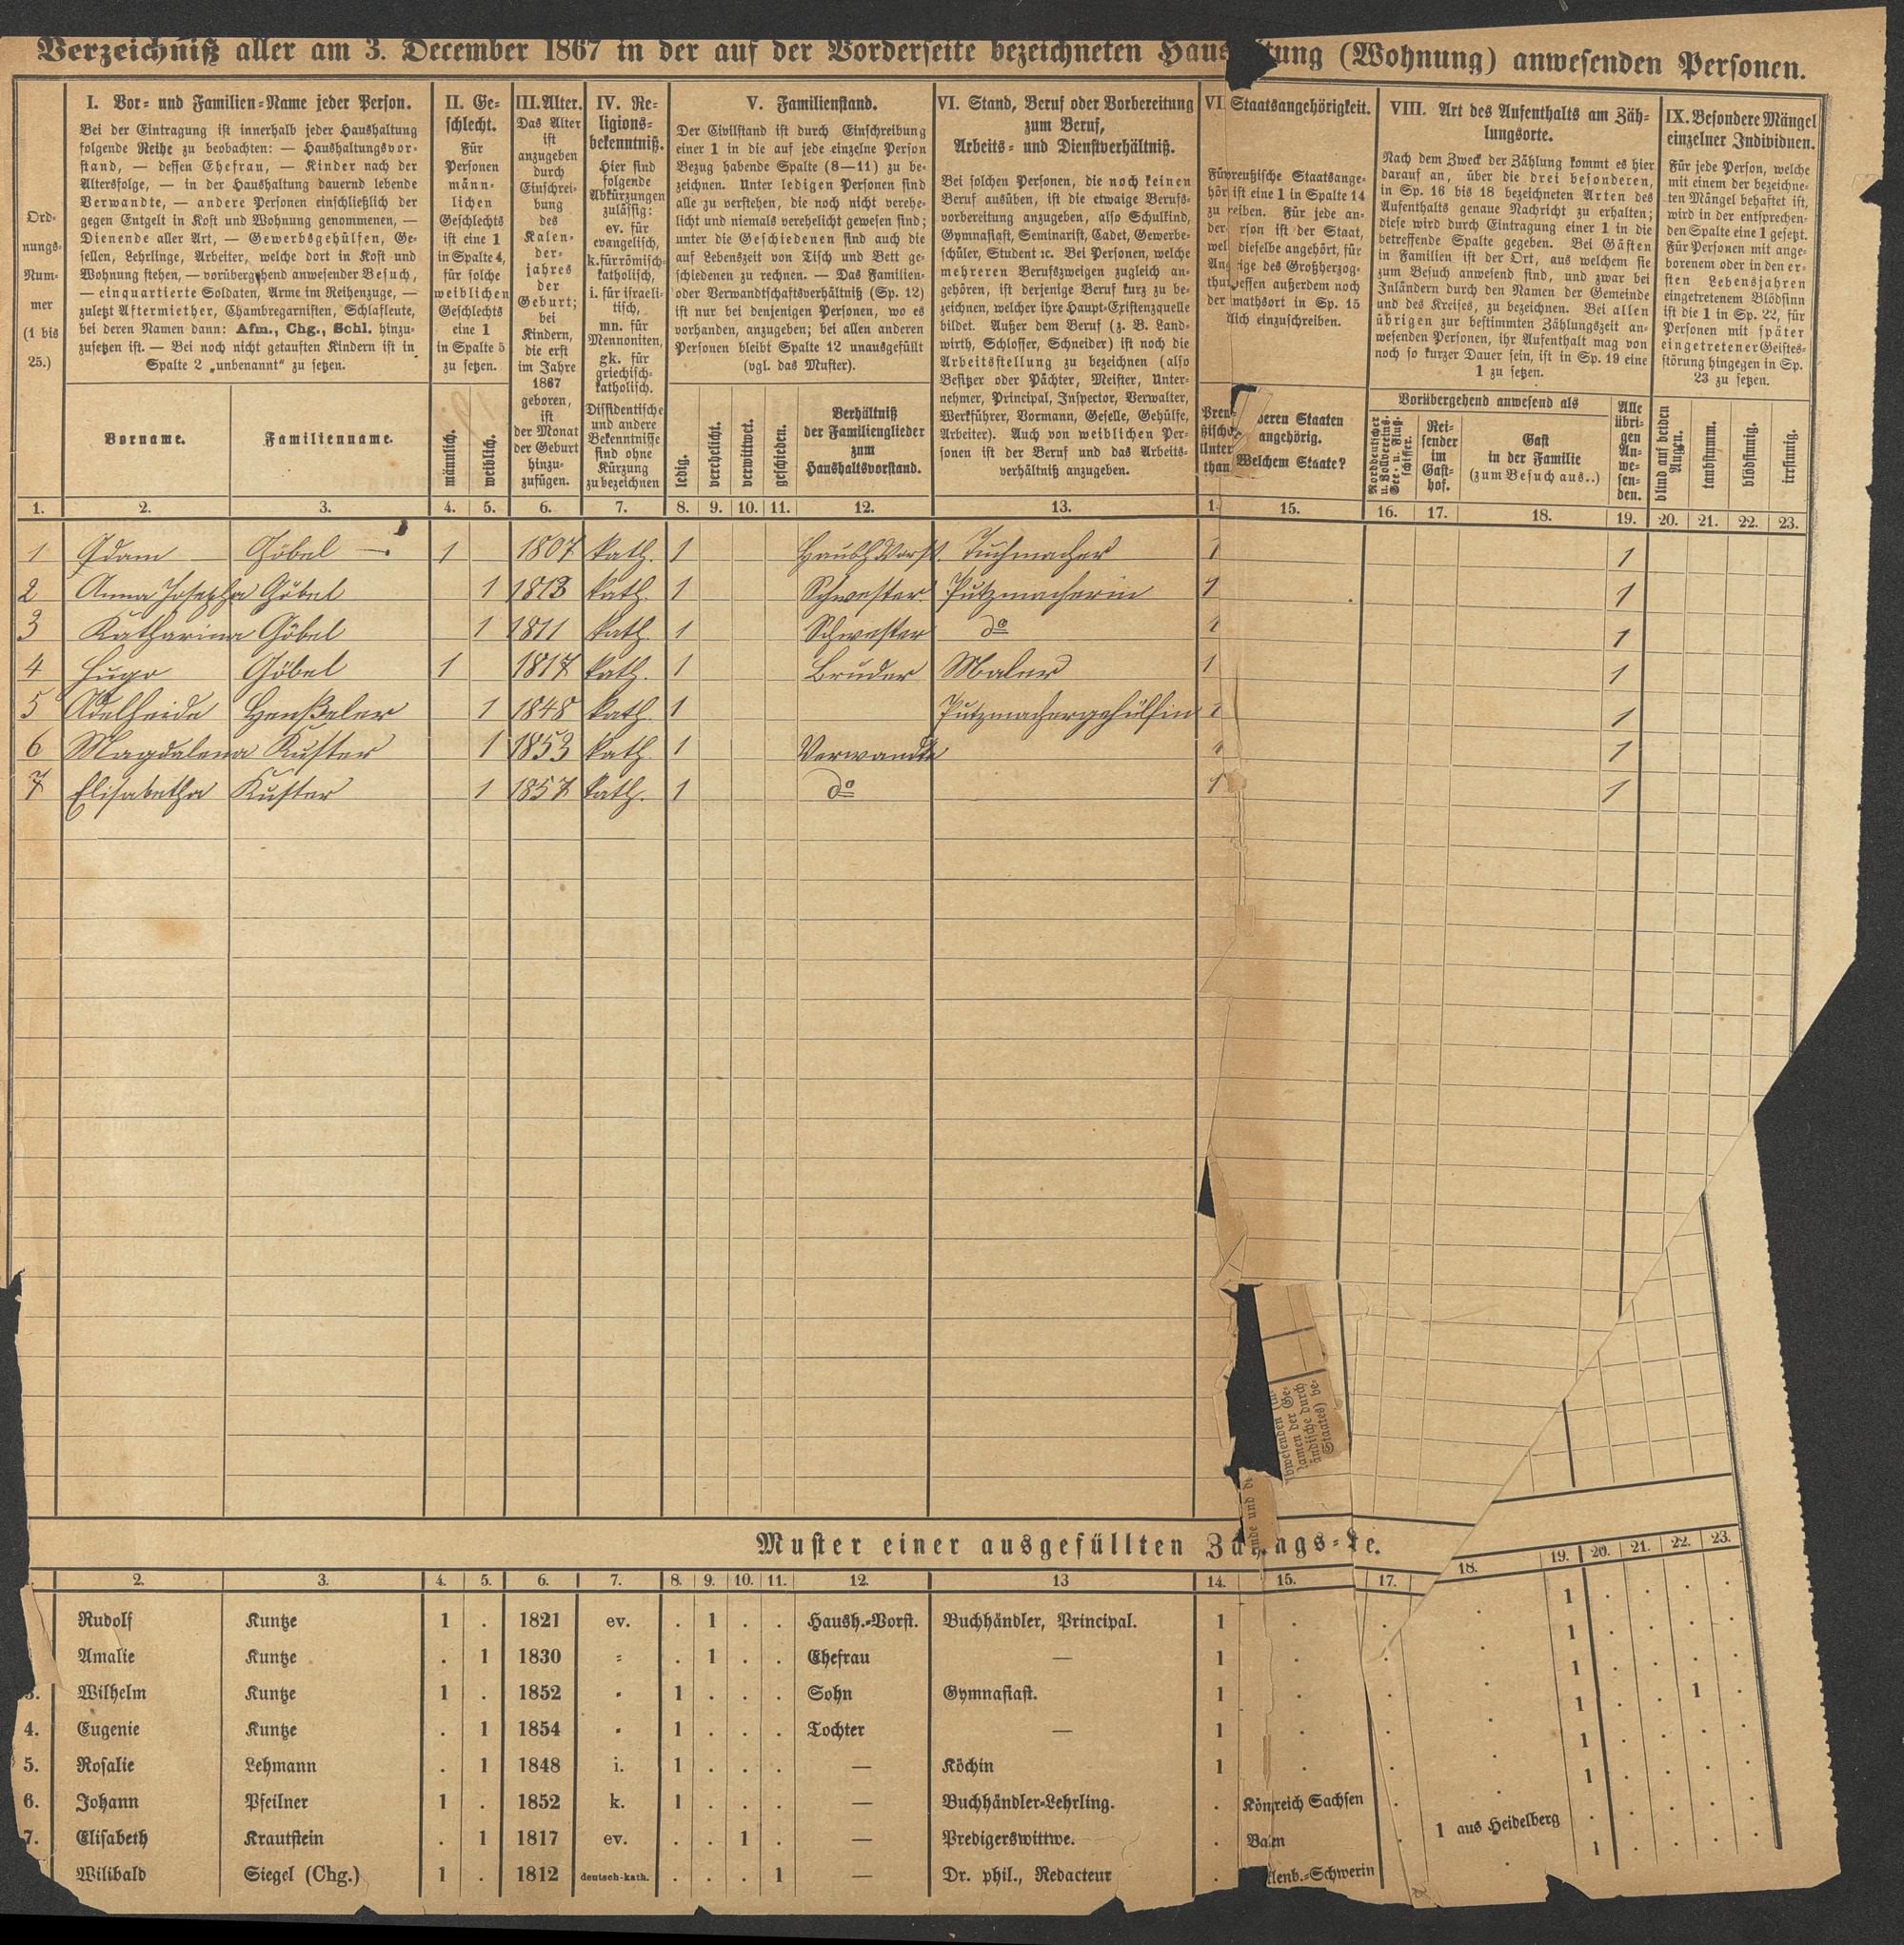 Verzeichniß aller am 3. December 1867 in der auf der Vorderseite bezeichneten Haus tung (Wohnung) anwesenden Personen.
Ord-
nungs-
Num-
mer
(1 bis
25.)
I. Vor- und Familien-Name jeder Person.
Bei der Eintragung ist innerhalb jeder Haushaltung
folgende Reihe zu beobachten: — Haushaltungsvor-
stand, — dessen Ehefrau, — Kinder nach der
Altersfolge, — in der Haushaltung dauernd lebende
Verwandte, — andere Personen einschließlich der
gegen Entgelt in Kost und Wohnung genommenen, —
Dienende aller Art, — Gewerbsgehülfen, Ge-
sellen, Lehrlinge, Arbeiter, welche dort in Kost und
Wohnung stehen, — vorübergehend anwesender Besuch,
— einquartierte Soldaten, Arme im Reihenzuge, —
zuletzt Aftermiether, Chambregarnisten, Schlafleute,
bei deren Namen dann: Afm., Chg., Schl. hinzu-
zusetzen ist. — Bei noch nicht getauften Kindern ist in
Spalte 2 „unbenannt" zu setzen.
Vorname.
Familienname.
II. Ge-
schlecht.
Für
Personen
männ-
lichen
Geschlechts
ist eine 1
in Spalte 4,
für solche
weiblichen
Geschlechts
eine 1
in Spalte 5
zu setzen.
männlich.
weiblich.
III. Alter.
Das Alter
ist
anzugeben
durch
Einschrei-
bung
des
Kalen-
der-
jahres
der
Geburt;
bei
Kindern,
die erst
im Jahre
1867
geboren,
ist
der Monat
der Geburt
hinzu-
zufügen.
IV. Re-
ligions-
bekenntniß.
Hier sind
folgende
Abkürzungen
zulässig:
ev. für
evangelisch,
k. für römisch-
katholisch,
i. für israeli-
tisch,
mn. für
Mennoniten,
gk. für
griechisch-
katholisch.
Dissidentische
und andere
Bekenntnisse
sind ohne
Kürzung
zu bezeichnen
V. Familienstand.
Der Civilstand ist durch Einschreibung
einer 1 in die auf jede einzelne Person
Bezug habende Spalte (8—11) zu be-
zeichnen. Unter ledigen Personen sind
alle zu verstehen, die noch nicht verehe-
licht und niemals verehelicht gewesen sind;
unter die Geschiedenen sind auch die
auf Lebenszeit von Tisch und Bett ge-
schiedenen zu rechnen. — Das Familien-
oder Verwandtschaftsverhältniß (Sp. 12)
ist nur bei denjenigen Personen, wo es
vorhanden, anzugeben; bei allen anderen
Personen bleibt Spalte 12 unausgefüllt
(vgl. das Muster).
ledig.
verehelicht.
verwittwet.
geschieden.
Verhältniß
der Familienglieder
zum
Haushaltsvorstand.
VI. Stand, Beruf oder Vorbereitung
zum Beruf,
Arbeits- und Dienstverhältniß.
Bei solchen Personen, die noch keinen
Beruf ausüben, ist die etwaige Berufs-
vorbereitung anzugeben, also Schulkind,
Gymnasiast, Seminarist, Cadet, Gewerbe-
schüler, Student ic. Bei Personen, welche
mehreren Berufszweigen zugleich an-
gehören, ist derjenige Beruf kurz zu be-
zeichnen, welcher ihre Haupt-Existenzquelle
bildet. Außer dem Beruf (z. B. Land-
wirth, Schlosser, Schneider) ist noch die
Arbeitsstellung zu bezeichnen (also
Besitzer oder Pächter, Meister, Unter-
nehmer, Principal, Inspector, Verwalter,
Werkführer, Vormann, Geselle, Gehülfe,
Arbeiter). Auch von weiblichen Per-
sonen ist der Beruf und das Arbeits-
verhältniß anzugeben.
VI Staatsangehörigkeit.
Für preußische Staatsange-
hör ist eine 1 in Spalte 14
zu reiben. Für jede an-
der rson ist der Staat,
wel dieselbe angehört, für
An ige des Großherzog-
thu essen außerdem noch
der mathsort in Sp. 15
lich einzuschreiben.
Preu-
ßische
Unter
than
deren Staaten
angehörig.
Welchem Staate?
VIII. Art des Aufenthalts am Zäh-
lungsorte.
Nach dem Zweck der Zählung kommt es hier
darauf an, über die drei besonderen,
in Sp. 16 bis 18 bezeichneten Arten des
Aufenthalts genaue Nachricht zu erhalten;
diese wird durch Eintragung einer 1 in die
betreffende Spalte gegeben. Bei Gästen
in Familien ist der Ort, aus welchem sie
zum Besuch anwesend sind, und zwar bei
Inländern durch den Namen der Gemeinde
und des Kreises, zu bezeichnen. Bei allen
übrigen zur bestimmten Zählungszeit an-
wesenden Personen, ihr Aufenthalt mag von
noch so kurzer Dauer sein, ist in Sp. 19 eine
1 zu setzen.
Vorübergehend anwesend als
Norddeutscher
u. Zollvereins-
See- u. Fluß-
schiffer.
Rei-
sender
im
Gast-
hof.
Gast
in der Familie
(zum Besuch aus..)
Alle
übri-
gen
An-
we-
sen-
den.
IX. Besondere Mängel
einzelner Individuen.
Für jede Person, welche
mit einem der bezeichne-
ten Mängel behaftet ist,
wird in der entsprechen-
den Spalte eine 1 gesetzt.
Für Personen mit ange-
borenem oder in den er-
sten Lebensjahren
eingetretenem Blödsinn
ist die 1 in Sp. 22, für
Personen mit später
eingetretener Geistes-
störung hingegen in Sp.
23 zu setzen.
blind auf beiden
Augen.
taubstumm.
blödsinnig.
irrsinnig.
1. 2. 3. 4. 5. 6. 7. 8. 9. 10. 11. 12. 13. 1 15. 16. 17. 18. 19. 20. 21. 22. 23.
1 Adam Göbel 1 1807 kath. 1 Haush Vorst. Tuchmacher 1 1
2 Anna Josepha Göbel 1 1813 kath. 1 Schwester Putzmacherin 1 1
3 Katharina Göbel 1 1811 kath. 1 Schwester do 1 1
4 Hugo Göbel 1 1817 kath. 1 Bruder Maler 1 1
5 Adelheide Henßeler 1 1848 kath. 1 Putzmachergehülfin 1 1
6 Magdalena Kuster 1 1853 kath. 1 Verwandte 1 1
7 Elisabetha Kuster 1 1857 kath. 1 do 1 1
bwesenden
amen der Ge-
ändische durch
Staates) be-
nde und
Muster einer ausgefüllten Zä ngs- te.
2. 3. 4. 5. 6. 7. 8. 9. 10. 11. 12. 13 14. 15. 17. 18. 19. 20. 21. 22. 23.
Rudolf Kuntze 1 . 1821 ev. . 1 . . Haush.-Vorst. Buchhändler, Principal. 1 . . . 1 . . . .
Amalie Kuntze . 1 1830 = . 1 . . Ehefrau — 1 . . . 1 . . . .
3. Wilhelm Kuntze 1 . 1852 " 1 . . . Sohn Gymnasiast. 1 . . . 1 . . . .
4. Eugenie Kuntze . 1 1854 " 1 . . . Tochter — 1 . . . 1 . . 1 .
5. Rosalie Lehmann . 1 1848 i. 1 . . . — Köchin 1 . . . 1 . . . .
6. Johann Pfeilner 1 . 1852 k. 1 . . . — Buchhändler-Lehrling. . Königreich Sachsen . . 1 . . . .
7. Elisabeth Krautstein . 1 1817 ev. . . 1 . — Predigerswittwe. . Baden . 1 aus Heidelberg . . . . .
Wilibald Siegel (Chg.) 1 . 1812 deutsch-kath. . . . 1 — Dr. phil., Redacteur . lenb.-Schwerin . . 1 . . . .